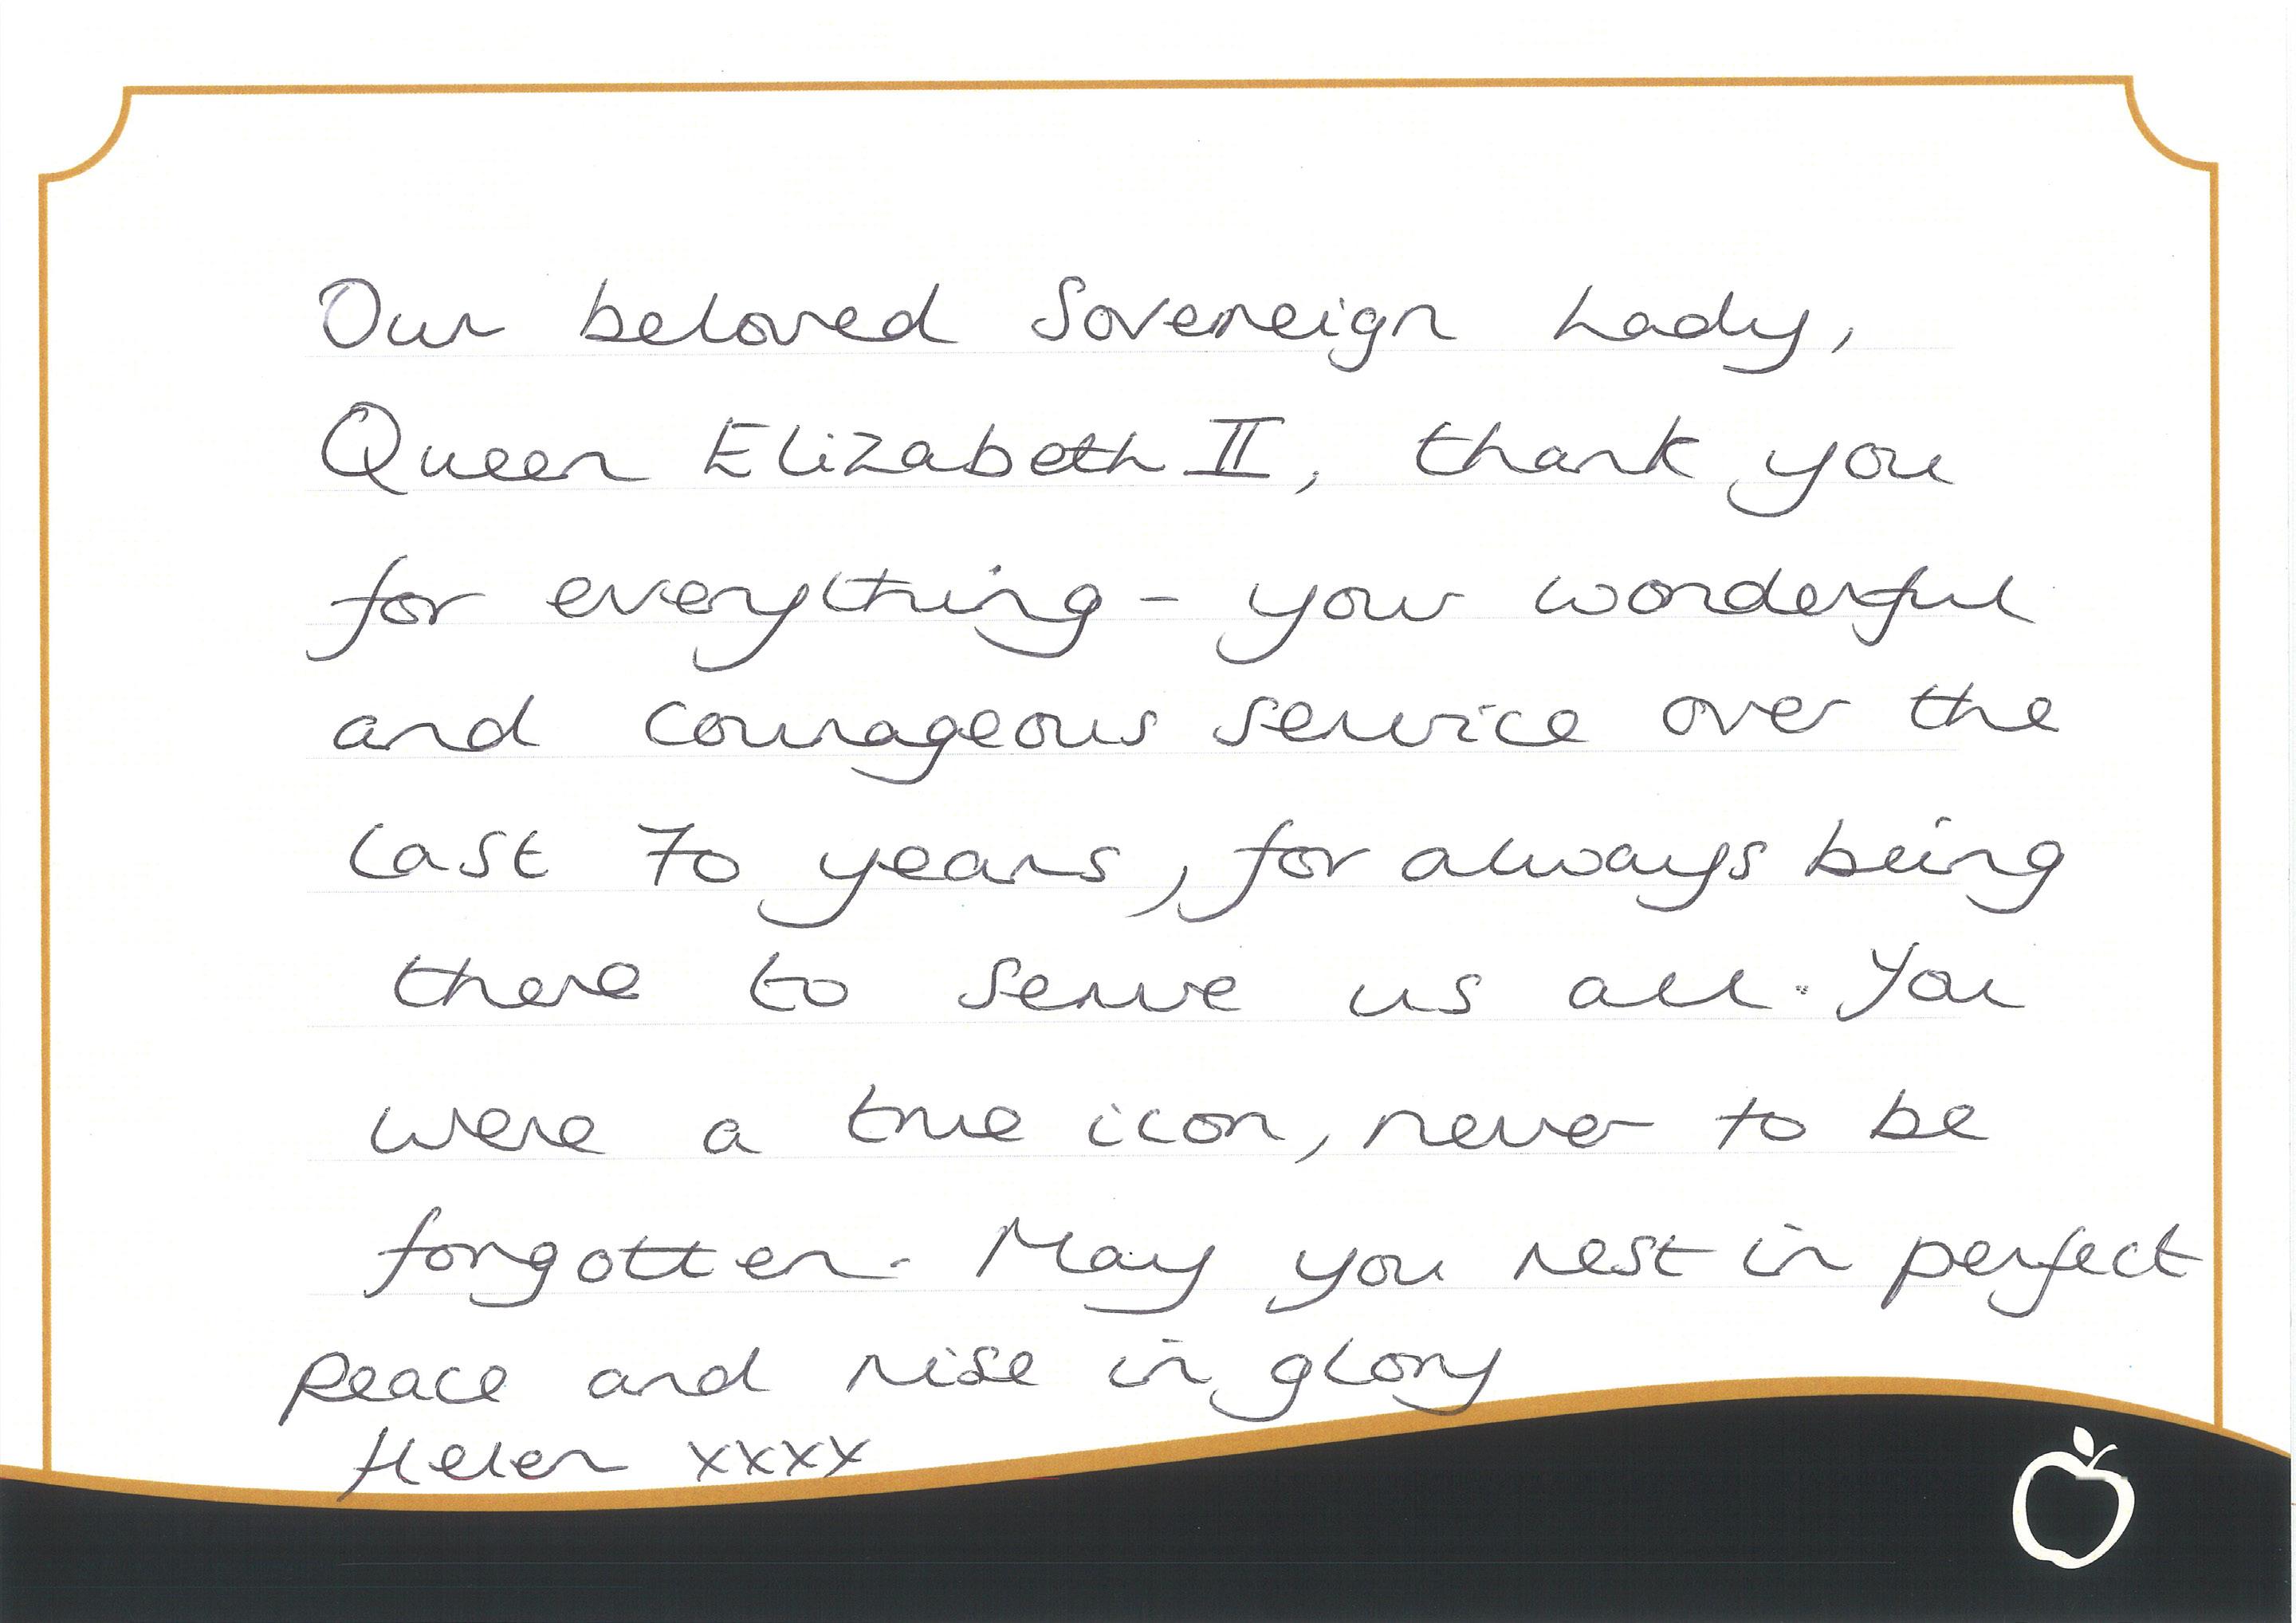 Our beloved Sovereign Lady,
Queen Elizabeth II, thank you
for everything - your wonderful
and courageous service over the
last 70 years, for always being
there to serve us all. You
were a true icon, never to be
forgotten. May you rest in perfect
peace and rise in glory
Helen xxxx